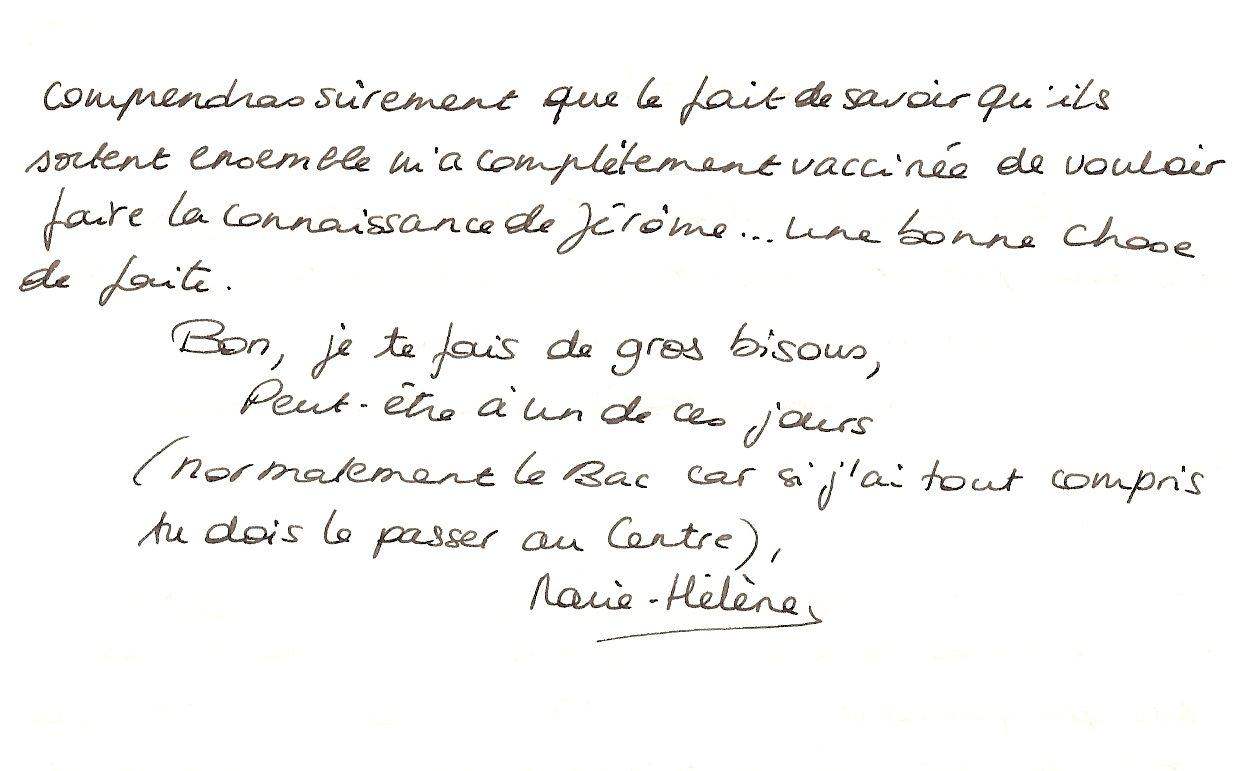 comprendras sûrement que le fait de savoir qu'ils
sortent ensemble m'a complètement vaccinée de vouloir
faire la connaissance de Jérôme... une bonne chose
de faite.
Bon, je te fais de gros bisous,
Peut-être à un de ces jours
(normalement le Bac car si j'ai tout compris
tu dois le passer au Centre),
Marie-Hélène,